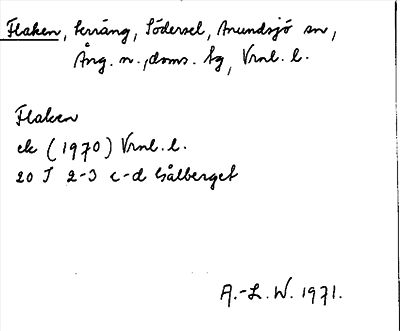 Flaken, terräng, Södersel, Anundsjö sn,
Ång. n., doms. hg, Vrnl. l.
Flaken
ek (1970) Vrnl. l.
20 J 2-3 c-d Gålberget
A.-L. W. 1971.